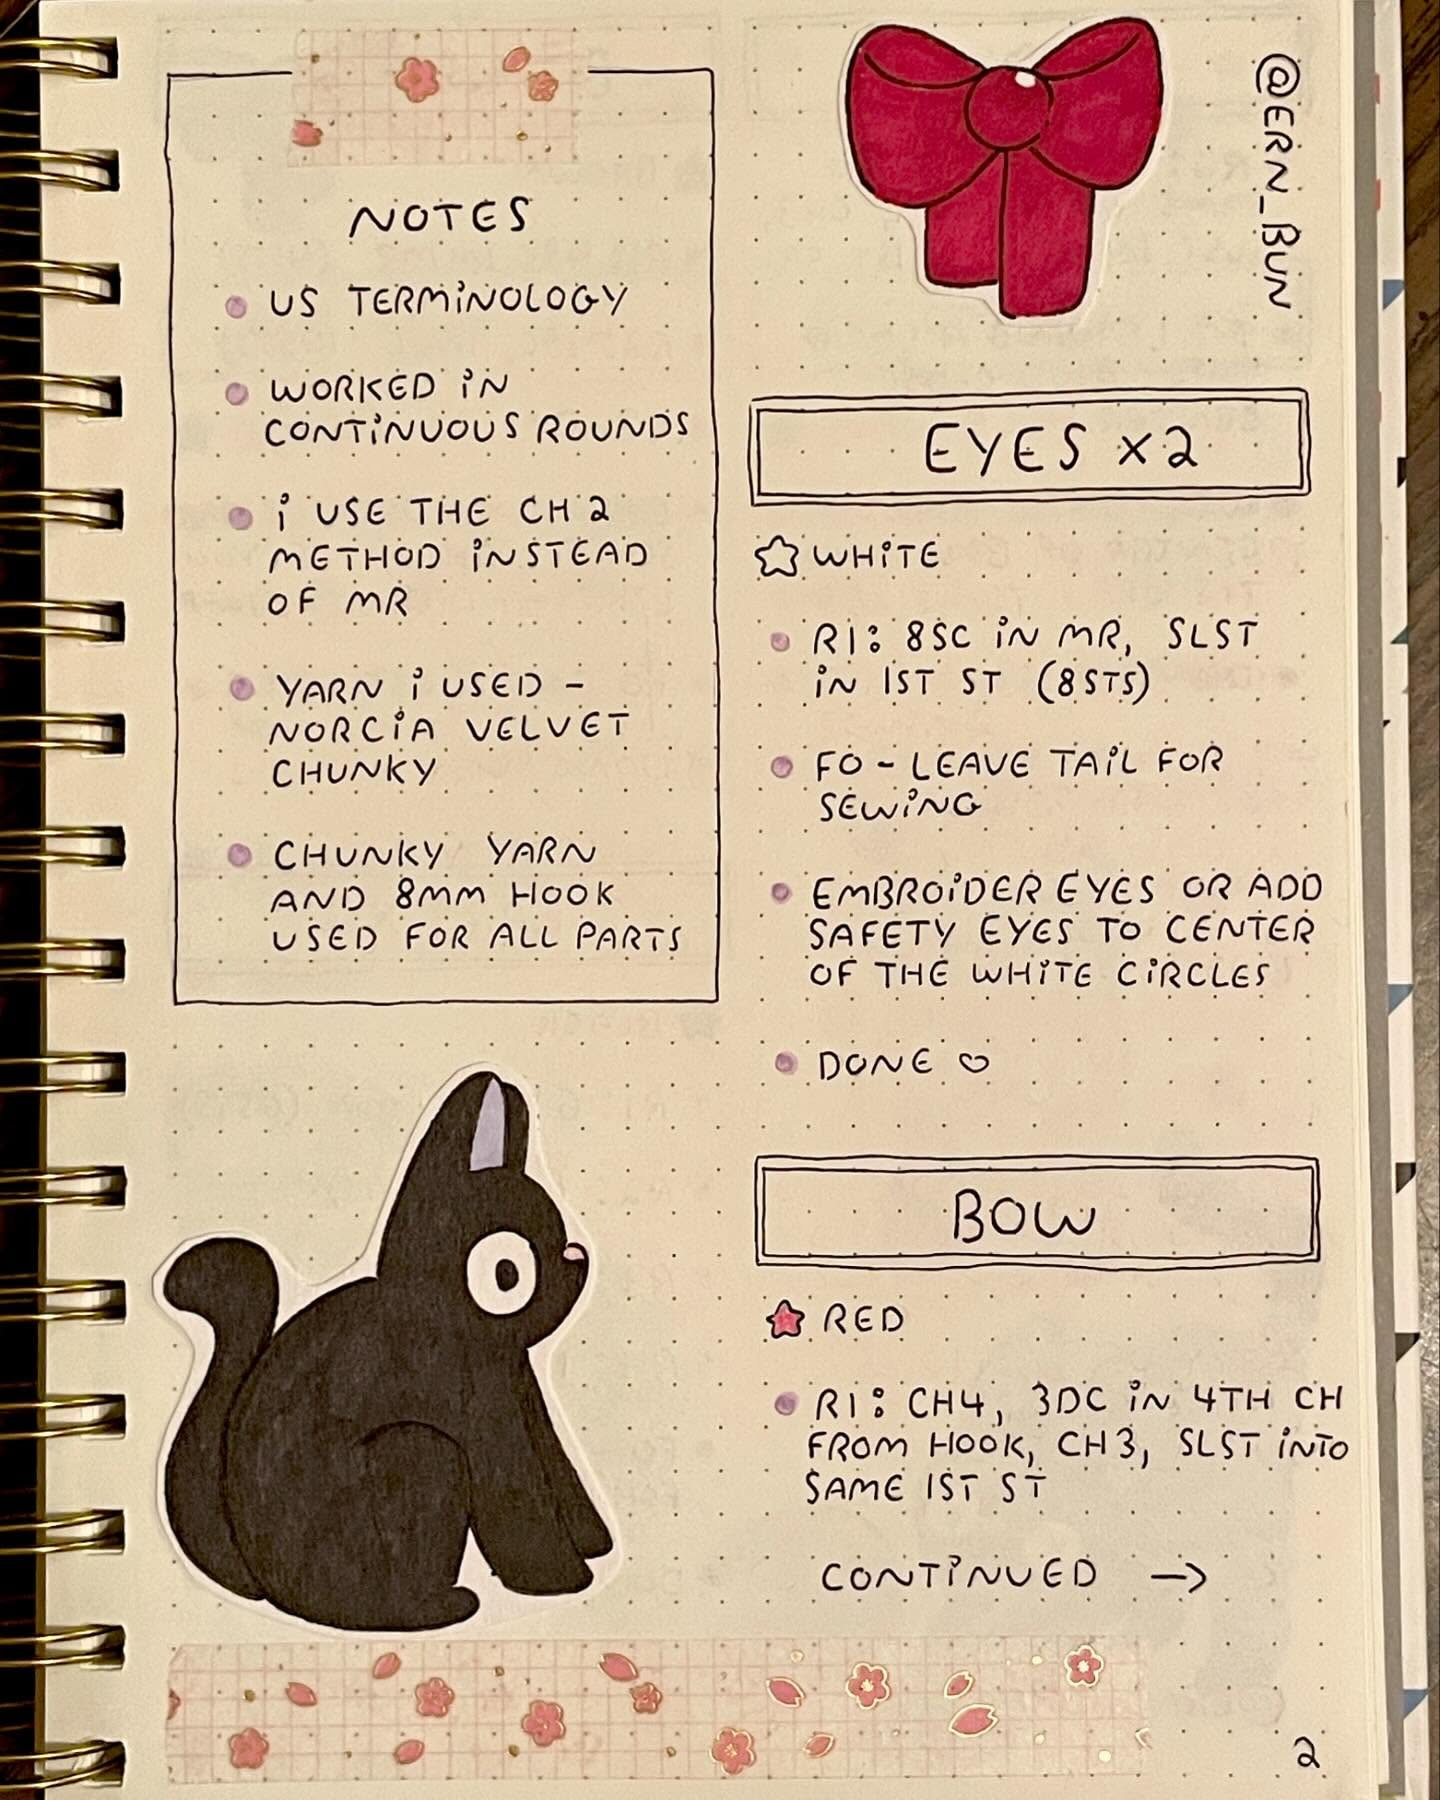 NOTES
US TERMINOLOGY
WORKED IN
CONTINUOUS ROUNDS
I USE THE CH 2
METHOD INSTEAD
OF MR
YARN I USED -
NORCIA VELVET
CHUNKY
CHUNKY YARN
AND 8MM HOOK
USED FOR ALL PARTS
@ERN_BUN
EYES X2
WHITE
R1: 8SC IN MR, SLST
IN 1ST ST (8STS)
FO - LEAVE TAIL FOR
SEWING
EMBROIDER EYES OR ADD
SAFETY EYES TO CENTER
OF THE WHITE CIRCLES
DONE ♡
BOW
RED
R1: CH4, 3DC IN 4TH CH
FROM HOOK, CH3, SLST INTO
SAME 1ST ST
CONTINUED →
2